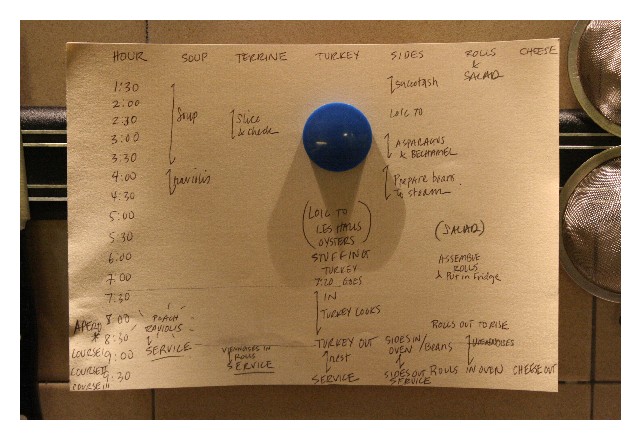 HOUR SOUP TERRINE TURKEY SIDES ROLLS & SALAD CHEESE
1:30 succotash
2:00
2:30 Soup Slice & check LOIC TO
3:00 ASPARAGUS
3:30 & BECHAMEL
4:00 raviolis Prepare beans
4:30 to storm
5:00 (LOIC TO
LES HALLS
5:30 OYSTERS) (SALAD)
6:00 STUFFING ASSEMBLE
ROLLS
7:00 TURKEY & Put in Fridge
7:20 GOES
7:30 IN
APERO 8:00 POACH RAVIOLIS TURKEY COOKS ROLLS OUT TO RISE
* 8:30 TURKEY OUT SIDES IN OVEN / Beans
COURSE I 9:00 SERVICE IN ROLLS rest
COURSE II 9:30 SERVICE SERVICE SIDES OUT SERVICE ROLLS IN OVEN CHEESE OUT
COURSE III